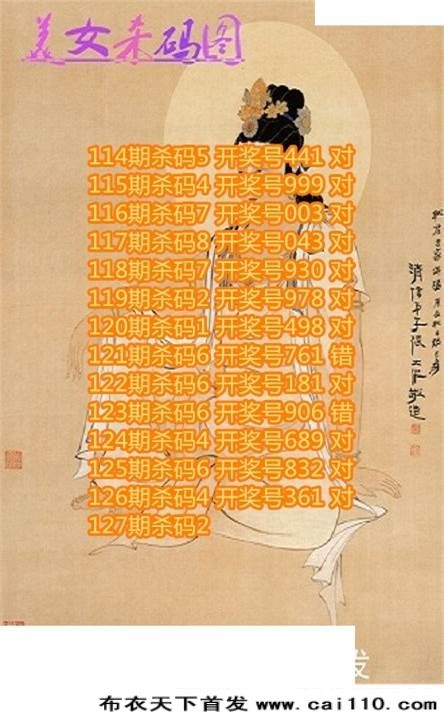 美女杀码图
114期杀码5 开奖号441 对
115期杀码4 开奖号999 对
116期杀码7 开奖号003 对
117期杀码8 开奖号043 对
118期杀码7 开奖号930 对
119期杀码2 开奖号978 对
120期杀码1 开奖号498 对
121期杀码6 开奖号761 错
122期杀码6 开奖号181 对
123期杀码6 开奖号906 错
124期杀码4 开奖号689 对
125期杀码6 开奖号832 对
126期杀码4 开奖号361 对
127期杀码2
发
布衣天下首发 www.cai110.com